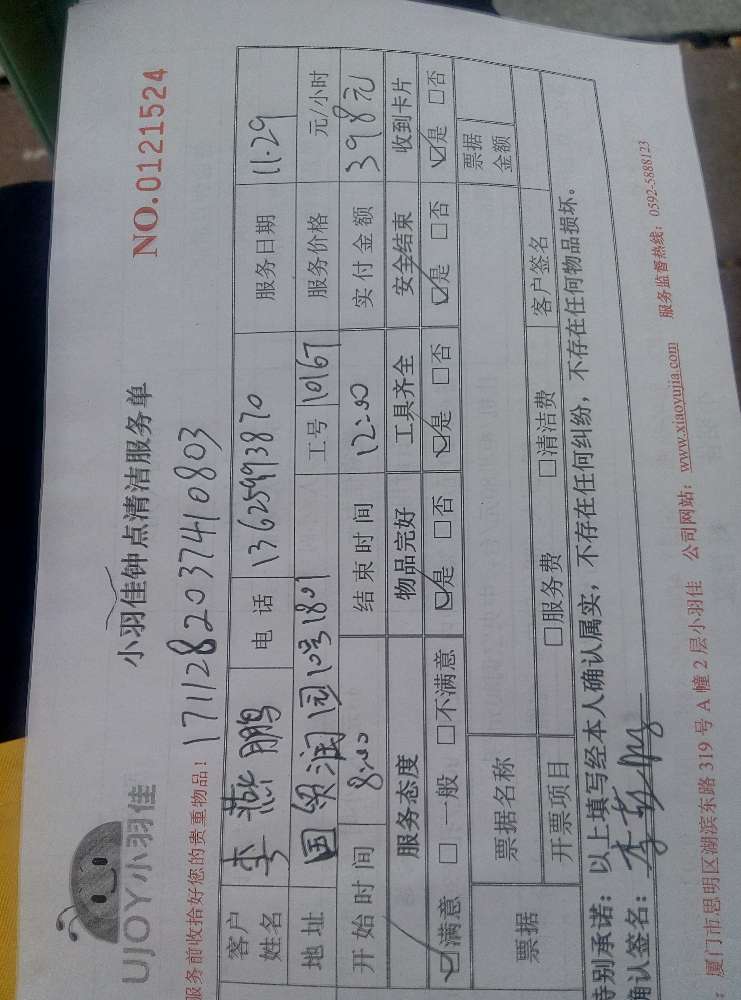 UJOY小羽佳
小羽佳钟点清洁服务单
NO.0121524
服务前收拾好您的贵重物品！ 1711282037410803
客户姓名 李燕鹏 电话 13625993870 服务日期 11.29
地址 国贸润园12号1801 工号 10167 服务价格 元/小时
开始时间 8:00 结束时间 12:00 实付金额 398元
服务态度 物品完好 工具齐全 安全结束 收到卡片
☑满意 □一般 □不满意 ☑是 □否 ☑是 □否 ☑是 □否 ☑是 □否
票据 票据名称 票据金额
开票项目 □服务费 □清洁费 客户签名
特别承诺：以上填写经本人确认属实，不存在任何纠纷，不存在任何物品损坏。
确认签名：李燕鹏
：厦门市思明区湖滨东路319号A幢2层小羽佳 公司网站：www.xiaoyujia.com 服务监督热线：0592-5888123